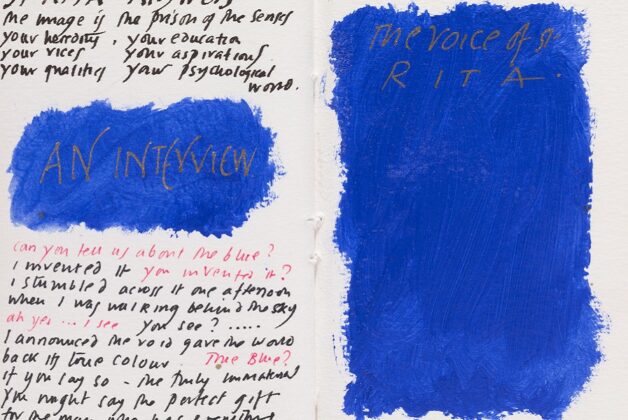 The image is the prison of the senses
your heredity, your education
your vices your aspirations
your qualities your psychological
world.
AN INTERVIEW
can you tell us about the blue?
I invented it you invented it?
I stumbled across it one afternoon
when I was walking behind the sky
ah yes ... I see you see? .....
I announced the void gave the world
back its true colour. True Blue?
if you say so - the truly immaterial
you might say the perfect gift
for the man who has everything
The voice of St
RITA.